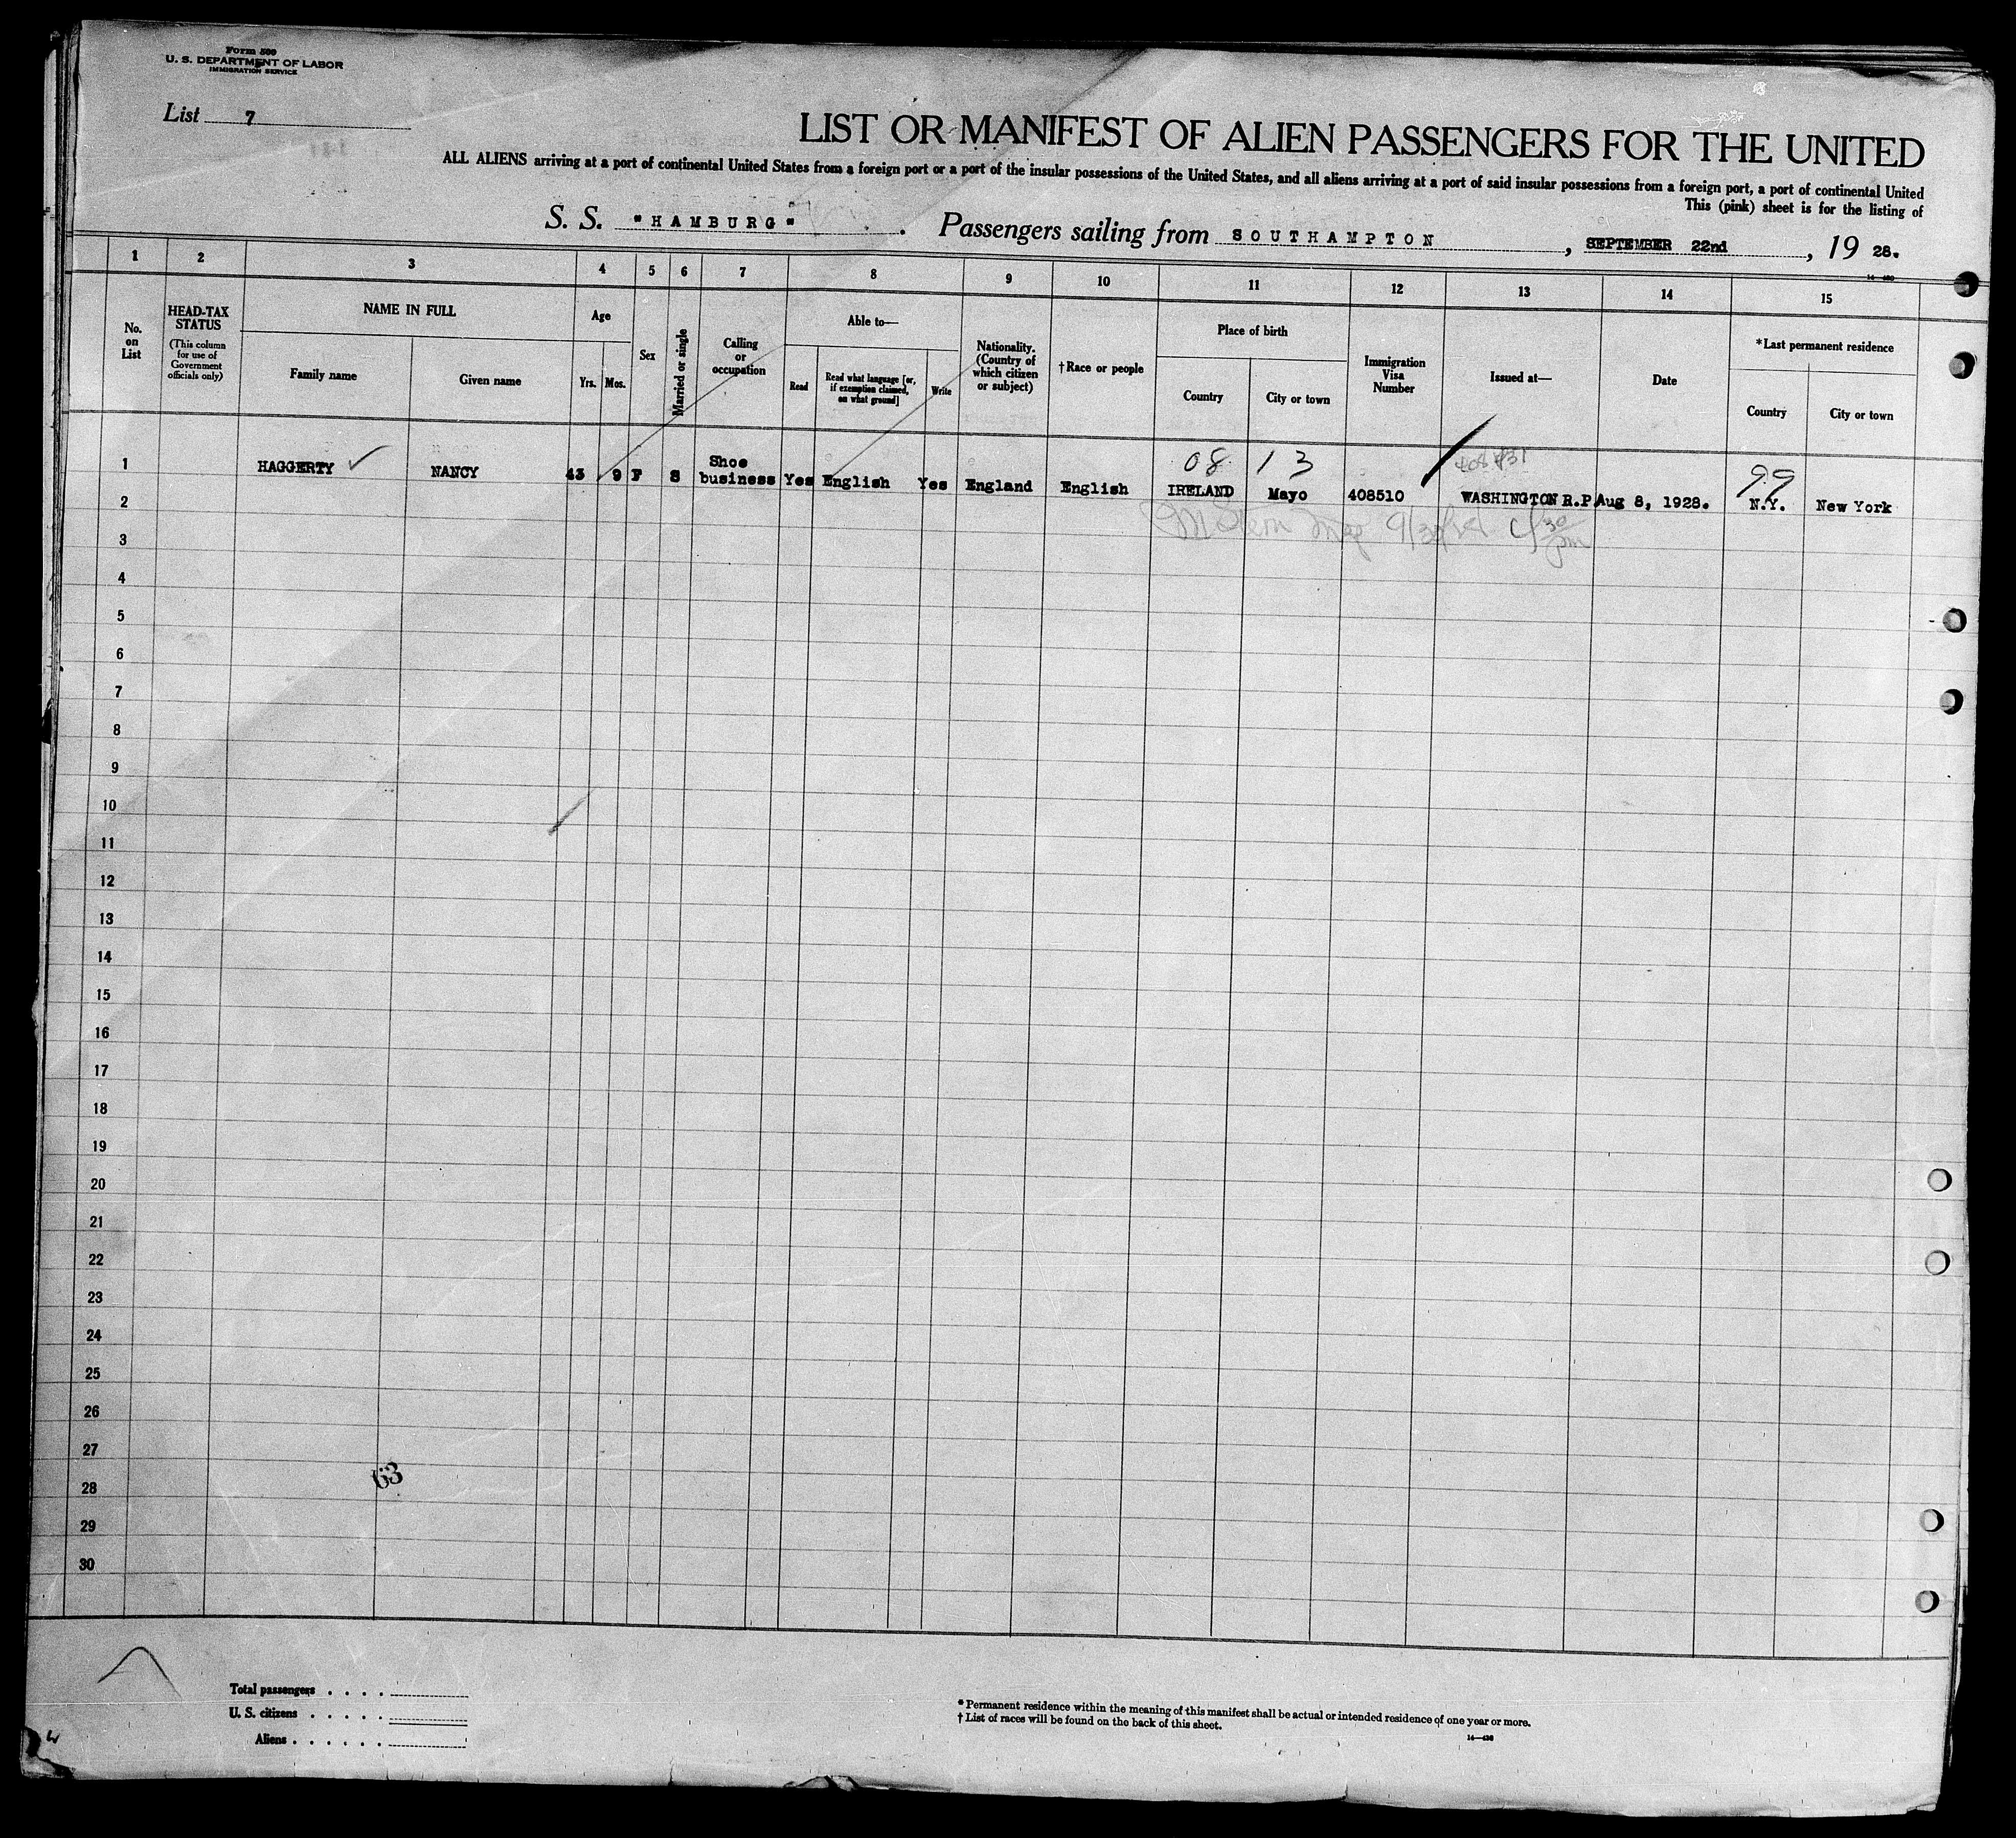 Form 500
U. S. DEPARTMENT OF LABOR
IMMIGRATION SERVICE
List 7
LIST OR MANIFEST OF ALIEN PASSENGERS FOR THE UNITED
ALL ALIENS arriving at a port of continental United States from a foreign port or a port of the insular possessions of the United States, and all aliens arriving at a port of said insular possessions from a foreign port, a port of continental United
This (pink) sheet is for the listing of
S. S. "HAMBURG". Passengers sailing from SOUTHAMPTON, SEPTEMBER 22nd, 19 28.
1 2 3 4 5 6 7 8 9 10 11 12 13 14 15
No. on List
HEAD-TAX STATUS
(This column for use of Government officials only)
NAME IN FULL
Family name
Given name
Age
Yrs.
Mos.
Sex
Married or single
Calling or occupation
Able to—
Read
Read what language [or, if exemption claimed, on what ground]
Write
Nationality. (Country of which citizen or subject)
†Race or people
Place of birth
Country
City or town
Immigration Visa Number
Issued at—
Date
*Last permanent residence
Country
City or town
08 13 99
1 HAGGERTY NANCY 43 9 F S Shoe business Yes English Yes England English IRELAND Mayo 408510 WASHINGTON R.P Aug 8, 1928. N.Y. New York
2
3
4
5
6
7
8
9
10
11
12
13
14
15
16
17
18
19
20
21
22
23
24
25
26
27
63
28
29
30
Total passengers . . . .
U. S. citizens . . . . .
Aliens . . . . . .
* Permanent residence within the meaning of this manifest shall be actual or intended residence of one year or more.
† List of races will be found on the back of this sheet.